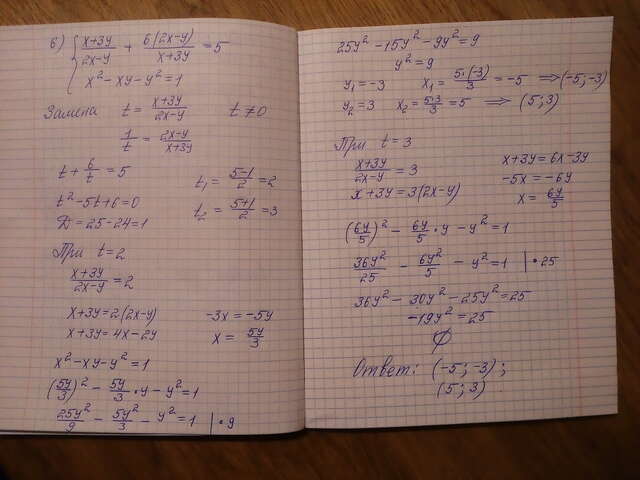 б) { (x+3y)/(2x-y) + 6(2x-y)/(x+3y) = 5
x² - xy - y² = 1
Замена t = (x+3y)/(2x-y) t ≠ 0
1/t = (2x-y)/(x+3y)
t + 6/t = 5 t₁ = (5-1)/2 = 2
t² - 5t + 6 = 0 t₂ = (5+1)/2 = 3
D = 25 - 24 = 1
При t = 2
(x+3y)/(2x-y) = 2
x+3y = 2(2x-y) -3x = -5y
x+3y = 4x - 2y x = 5y/3
x² - xy - y² = 1
(5y/3)² - 5y/3 · y - y² = 1
25y²/9 - 5y²/3 - y² = 1 | · 9
25y² - 15y² - 9y² = 9
y² = 9
y₁ = -3 x₁ = 5·(-3)/3 = -5 ⟹ (-5; -3)
y₂ = 3 x₂ = 5·3/3 = 5 ⟹ (5; 3)
При t = 3
(x+3y)/(2x-y) = 3 x+3y = 6x - 3y
x+3y = 3(2x-y) -5x = -6y
x = 6y/5
(6y/5)² - 6y/5 · y - y² = 1
36y²/25 - 6y²/5 - y² = 1 | · 25
36y² - 30y² - 25y² = 25
-19y² = 25
∅
Ответ: (-5; -3);
(5; 3)